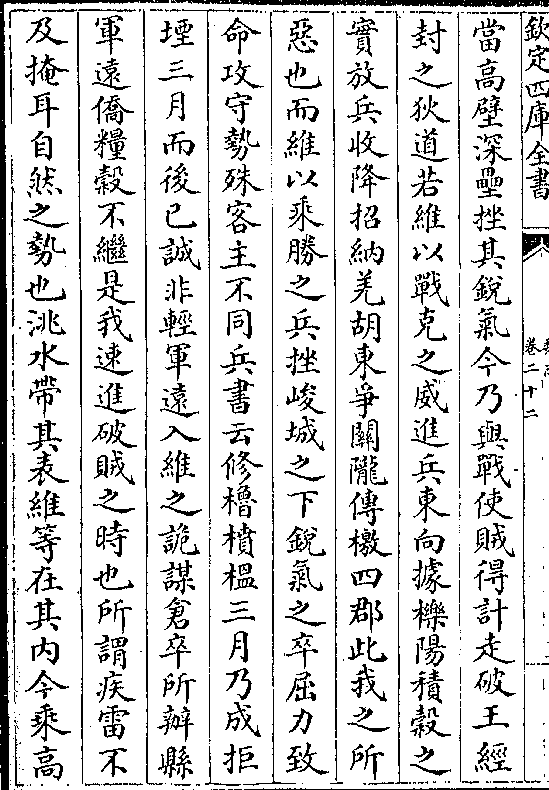 欽定四庫全書
卷二十二
當高壁深壘挫其銳氣今乃與戰使賊得計走破王經
封之狄道若維以戰克之威進兵東向據櫟陽積穀之
實放兵收降招納羌胡東爭關隴傳檄四郡此我之所
惡也而維以乘勝之兵挫峻城之下銳氣之卒屈力致
命攻守勢殊客主不同兵書云修櫓橨榲三月乃成拒
堙三月而後已誠非輕軍遠入維之詭謀倉卒所辦縣
軍遠僑糧穀不繼是我速進破賊之時也所謂疾雷不
及掩耳自然之勢也洮水帶其表維等在其內今乘高